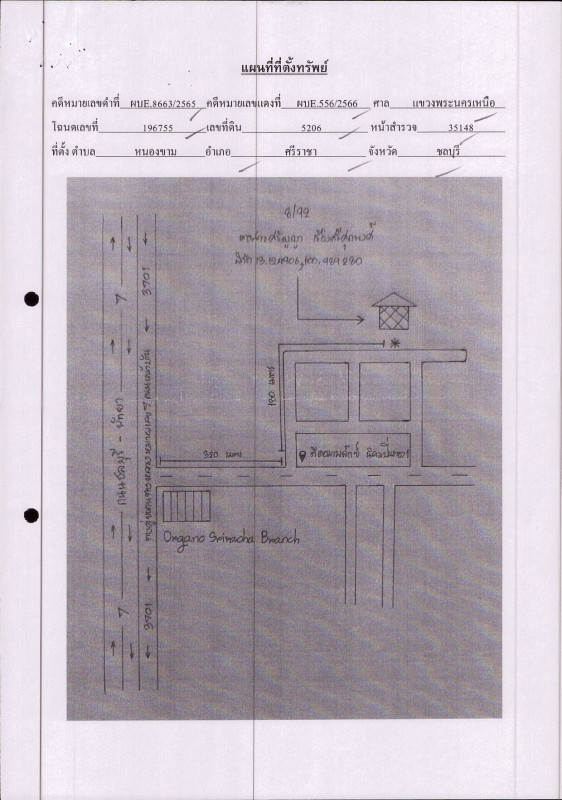 แผนที่ที่ตั้งทรัพย์
คดีหมายเลขดำที่ ผบE.8663/2565 คดีหมายเลขแดงที่ ผบE.556/2566 ศาล แขวงพระนครเหนือ
โฉนดเลขที่ 196755 เลขที่ดิน 5206 หน้าสำรวจ 35148
ที่ตั้ง ตำบล หนองขาม อำเภอ ศรีราชา จังหวัด ชลบุรี
8/92
พิกัด 13.124906, 100.929280
3701
7
100 เมตร
ถนนชลบุรี - พัทยา
320 เมตร
Organo Sriracha Branch
7
3701